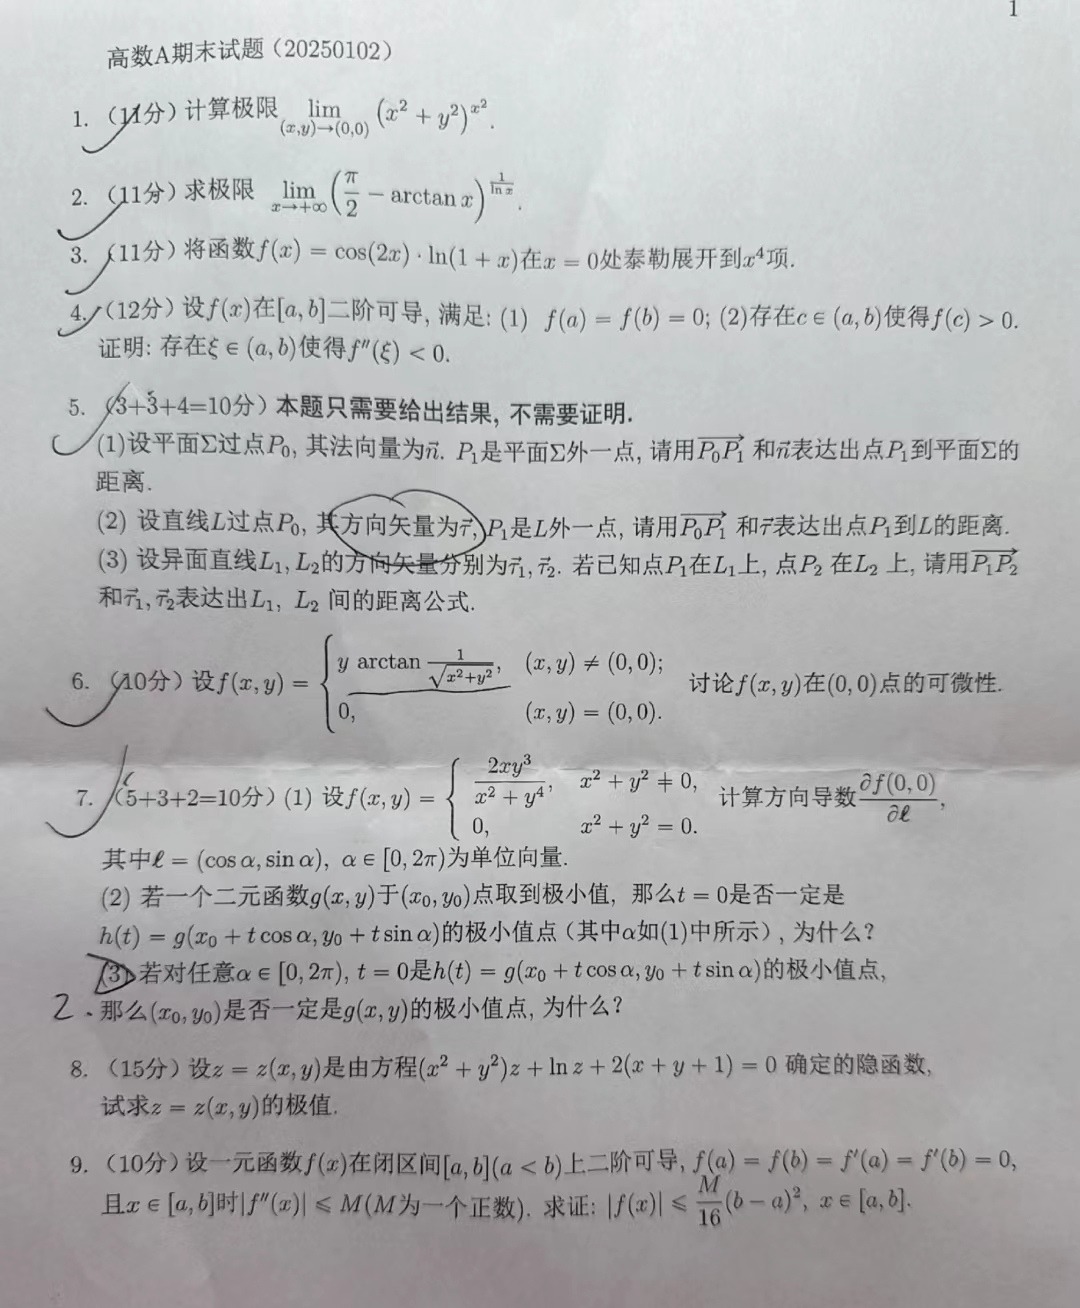 1
高数A期末试题（20250102）
1. （11分）计算极限 lim_{(x,y)→(0,0)} (x² + y²)^{x²}.
2. （11分）求极限 lim_{x→+∞} (π/2 − arctan x)^{1/ln x}.
3. （11分）将函数f(x) = cos(2x) · ln(1 + x)在x = 0处泰勒展开到x⁴项.
4. （12分）设f(x)在[a, b]二阶可导, 满足: (1) f(a) = f(b) = 0; (2)存在c ∈ (a, b)使得f(c) > 0.
证明: 存在ξ ∈ (a, b)使得f″(ξ) < 0.
5. （3+3+4=10分）本题只需要给出结果, 不需要证明.
(1)设平面Σ过点P₀, 其法向量为n⃗. P₁是平面Σ外一点, 请用\overrightarrow{P₀P₁} 和n⃗表达出点P₁到平面Σ的
距离.
(2) 设直线L过点P₀, 其方向矢量为τ⃗, P₁是L外一点, 请用\overrightarrow{P₀P₁} 和τ⃗表达出点P₁到L的距离.
(3) 设异面直线L₁, L₂的方向矢量分别为τ⃗₁, τ⃗₂. 若已知点P₁在L₁上, 点P₂ 在L₂ 上, 请用\overrightarrow{P₁P₂}
和τ⃗₁, τ⃗₂表达出L₁, L₂ 间的距离公式.
6. （10分）设f(x, y) = { y arctan 1/√(x²+y²), (x, y) ≠ (0, 0); 0, (x, y) = (0, 0). 讨论f(x, y)在(0, 0)点的可微性.
7. （5+3+2=10分）(1) 设f(x, y) = { 2xy³/(x² + y⁴), x² + y² ≠ 0, 0, x² + y² = 0. 计算方向导数 ∂f(0, 0)/∂ℓ,
其中ℓ = (cos α, sin α), α ∈ [0, 2π)为单位向量.
(2) 若一个二元函数g(x, y)于(x₀, y₀)点取到极小值, 那么t = 0是否一定是
h(t) = g(x₀ + t cos α, y₀ + t sin α)的极小值点（其中α如(1)中所示）, 为什么?
(3) 若对任意α ∈ [0, 2π), t = 0是h(t) = g(x₀ + t cos α, y₀ + t sin α)的极小值点,
2. 那么(x₀, y₀)是否一定是g(x, y)的极小值点, 为什么?
8. （15分）设z = z(x, y)是由方程(x² + y²)z + ln z + 2(x + y + 1) = 0 确定的隐函数,
试求z = z(x, y)的极值.
9. （10分）设一元函数f(x)在闭区间[a, b](a < b)上二阶可导, f(a) = f(b) = f′(a) = f′(b) = 0,
且x ∈ [a, b]时|f″(x)| ⩽ M(M为一个正数). 求证: |f(x)| ⩽ M/16 (b − a)², x ∈ [a, b].